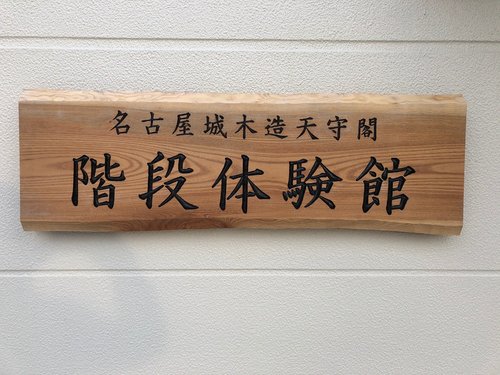 名古屋城木造天守閣
階段体験館